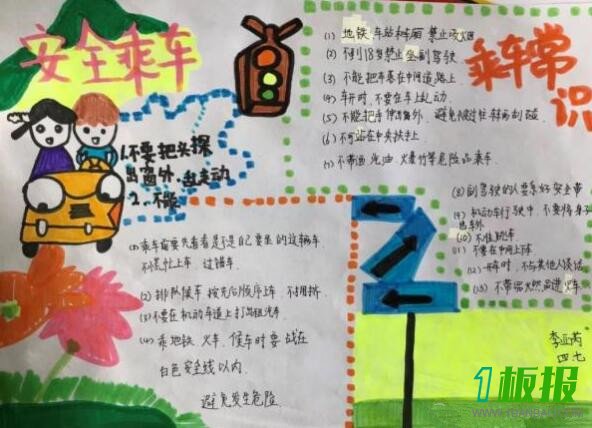 安全乘车
1.不要把头探
出窗外,乱走动
2.不能
(1) 乘车前要先看看是不是自己要乘的这辆车.
不慌忙上车,过错车.
(2) 排队候车,按先后顺序上车,不拥挤.
(3) 不要在机动车道上打出租汽车
(4) 乘地铁、火车,候车时要站在
白色安全线以内.
避免发生危险.
乘车常
识
(1) 地铁、车站和车厢禁止吸烟
(2) 不到18岁禁止坐副驾驶
(3) 不能把车停在中间道路上.
(4) 车开时,不要在车上乱动.
(5) 不能把手伸出窗外,避免被过往车辆刮碰
(6) 不可站在中央扶手上
(7) 不带酒、汽油、火爆竹等危险品乘车.
(8) 副驾驶的人要系好安全带
(9) 机动车行驶中,不要将身子
出车外
(10) 不准跳车.
(11) 不要在中间上下车.
(12) 开车时,不与其他人谈话
(13) 不带易火燃品进火车
李亚芮
四七
1板报
WWW.1BANBAO.COM